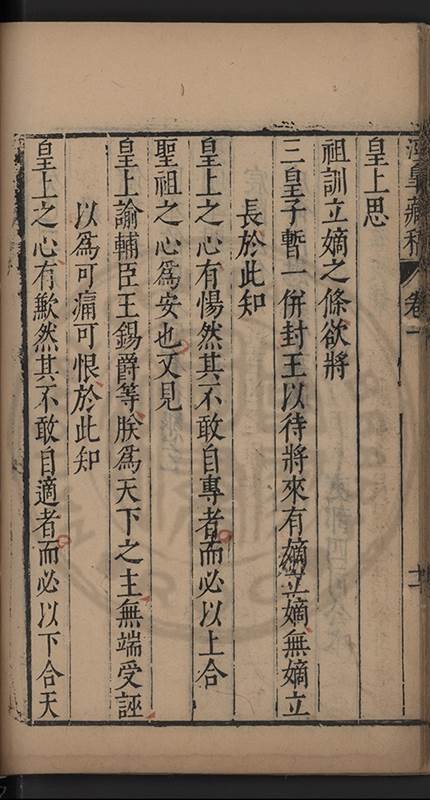 涇皋藏稿 卷一
皇上思
祖訓立嫡之條欲將
三皇子暫一併封王以待將來有嫡立嫡無嫡立
長於此知
皇上之心有惕然其不敢自專者而必以上合
聖祖之心為安也又見
皇上諭輔臣王錫爵等朕為天下之主無端受誣
以為可痛可恨於此知
皇上之心有歉然其不敢自適者而必以下合天